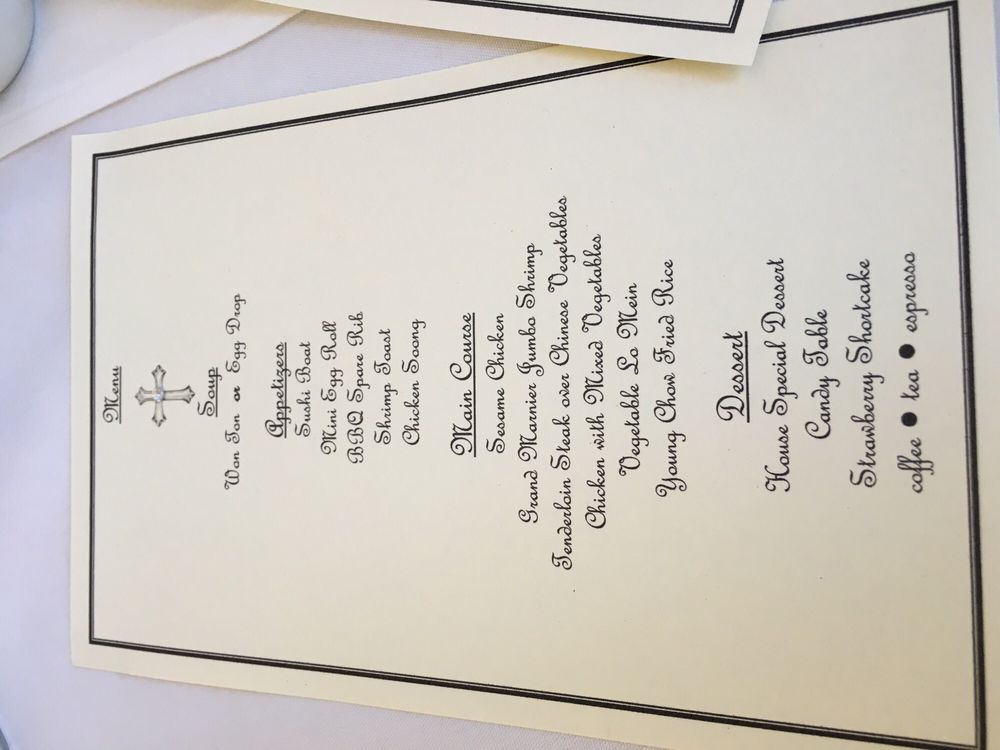 Menu
Soup
Won Ton or Egg Drop
Appetizers
Sushi Boat
Mini Egg Roll
BBQ Spare Rib
Shrimp Toast
Chicken Soong
Main Course
Sesame Chicken
Grand Marnier Jumbo Shrimp
Tenderloin Steak over Chinese Vegetables
Chicken with Mixed Vegetables
Vegetable Lo Mein
Young Chow Fried Rice
Dessert
House Special Dessert
Candy Table
Strawberry Shortcake
coffee ● tea ● espresso